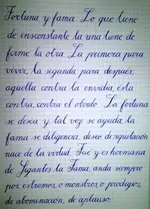 Fortuna y fama. Lo que tiene
de inconstante la una, tiene de
firme la otra. La primera para
vivir, la segunda para después;
aquella contra la envidia, ésta
contra el olvido. La fortuna
se desea y tal vez se ayuda, la
fama se diligencia; deseo de reputación
nace de la virtud. Fue y es hermana
de Gigantes la Fama; anda siempre
por extremos, o monstruos, o prodigios,
de abominación, de aplauso.